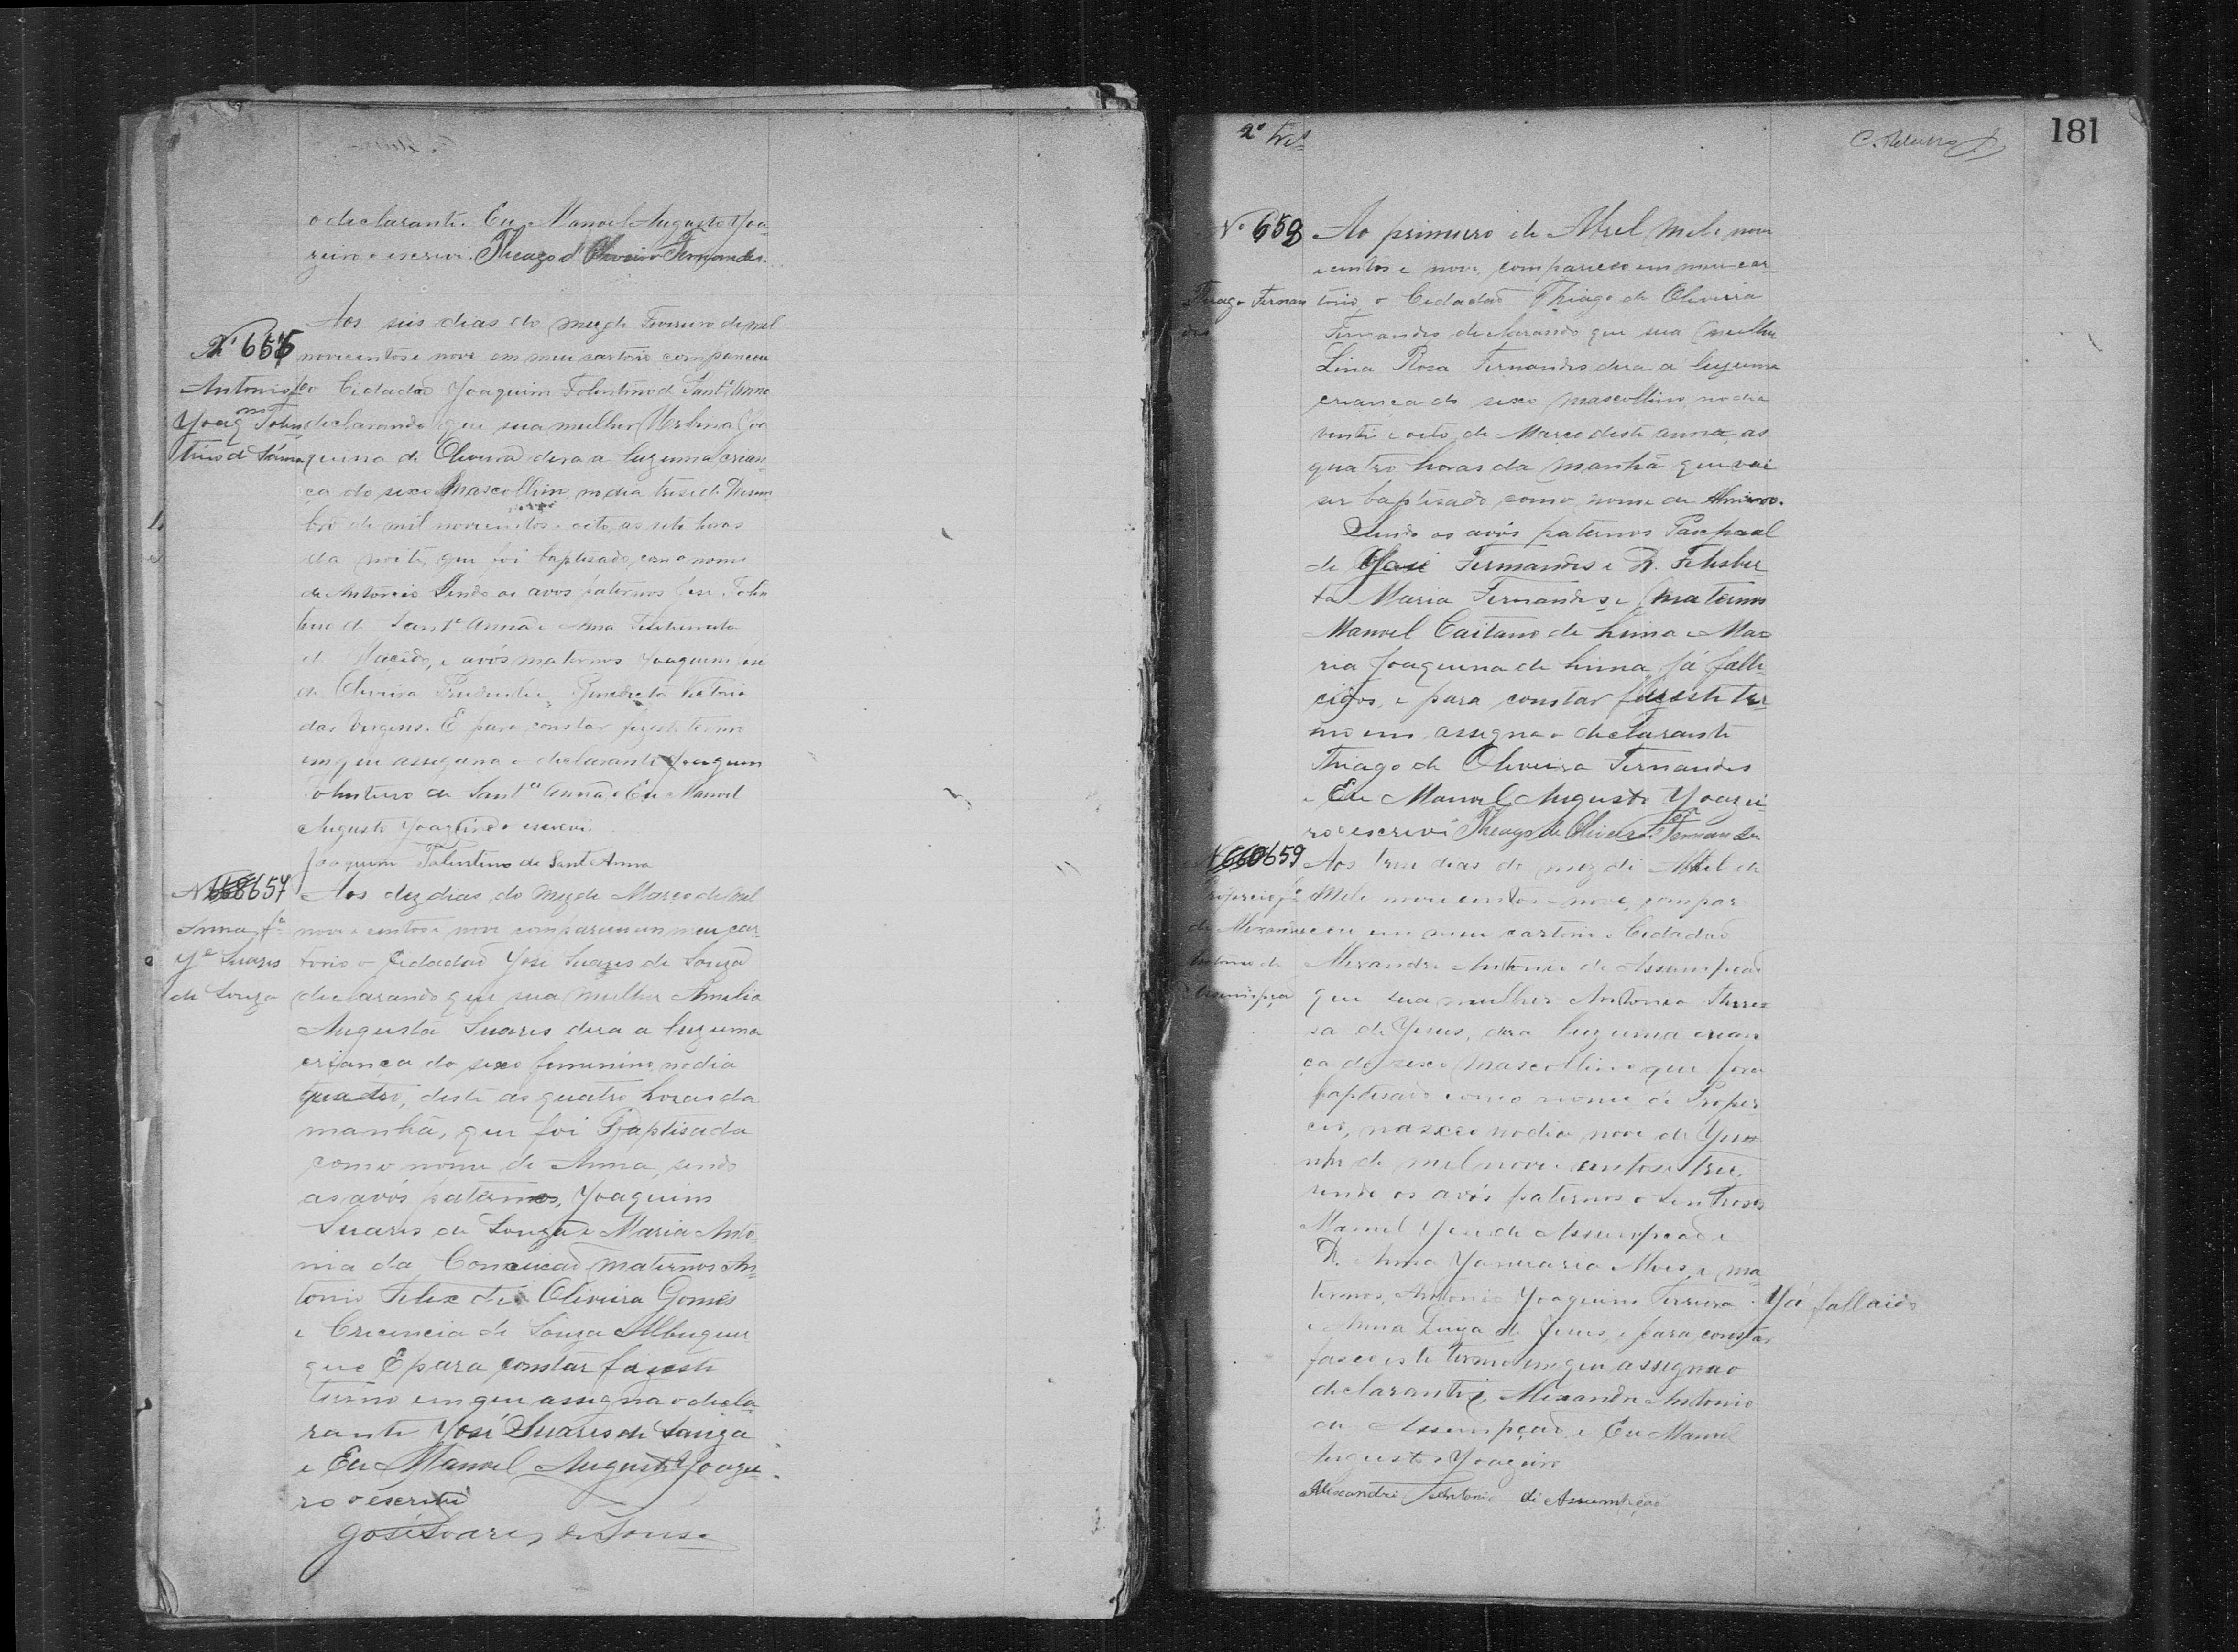 o declarante. Eu Manoel Augusto Yoa-
zeiro o escrivi. Theago d' Oliveira Fernandes.
Nº 656
Antonio fº
Yoaqm Tolen
tino de Sanna
Aos seis dias do mez de Fevereiro de mil
novecentos e nove em meu cartorio compareceu
o Cidadaõ Joaquim Tolentino de Sant'Anna
declarando que sua mulher Ursulina Joa
quina de Oliveira dera a luz uma crean
ça do sexo mascollino no dia treze de Dezem
bro de mil novecentos e oito, as sete horas
da noite, que foi baptisado com o nome
de Antonio Sendo os avós paternos José Tolen
tino de Santa Anna e Anna
de Macêdo, e avós maternos Joaquim José
de Oliveira Prudente e Benedicta Victoria
das Virgens. E para constar fiz este termo
em que assigna o declarante Joaquim
Tolentino de Santa Anna, e Eu Manoel
Augusto Yoazeiro o escrevi.
Joaquim Tolentino de Sant Anna
Nº 657
Anna fª
Yé Suares
de Souza
Aos dez dias do mez de Março de mil
nove centos e nove compareceu em meu car
torio o Cidadaõ Yosé Suares de Souza
declarando que sua mulher Amelia
Augusta Suares dera a luz uma
criança do sexo feminino no dia
quatro, deste as quatro horas da
manhã, que foi Baptisada
com o nome de Anna, sendo
as avós paternos, Yoaquim
Suares de Souza e Maria Anto-
nia da Conceicaõ, maternos An-
tonio Felix de Oliveira Gomes
e Crecencia de Souza Albuquer
que E para constar faz este
termo em que assigna o decla-
rante Yosé Suares de Souza
e Eu Manoel Augusto Yoazei-
ro o escrivi
José Soares de Sousa
2º
C.
181
Nº 658
Thiago Fernan
des
Ao primeiro de Abril mil e nove
centos e nove, compareceo em meu car-
torio o Cidadaõ Thiago de Oliveira
Fernandes declarando que sua mulher
Lina Rosa Fernandes dera a luz uma
criança do sexo mascollino no dia
vente e oito de Março deste anno as
quatro horas da manhã que vai
ser baptisado com o nome de
Sendo os avós paternos Paschoal
de José Fernandes e D. Felisber-
ta Maria Fernandes, e maternos
Manoel Caitano de Lima e Ma-
ria Joaquina de Lima já falle
cidos, e para constar faz este ter-
mo em assigna o declarante
Thiago de Oliveira Fernandes
e Eu Manoel Augusto Yoazei-
ro o escrivi Theago de Oliveira Fernandes
Nº 660 659
Propercio fº
de Alexandre
Antonio de
Assumpçaõ
Aos tres dias do mez de Abril de
Mil e nove centos e nove, compar
ceu em meu cartorio o Cidadaõ
Alexandre Antonio de Assumpcaõ
que sua mulher Antonia There-
sa de Yesus, dera luz uma crean
ça do sexo mascollino que fora
baptisado com o nome de Proper
cio, nasceo no dia nove de Yun-
nho de mil nove centos e tres,
sendo os avós paternos o Sentroses
Manoel Yosé de Assumpcaõ e
D. Anna Yanuaria Alves, e ma-
ternos, Antonio Yoaquim Ferreira Yá fallcido
e Anna Luiza de Jesus, e para constar
fasço este termo em que assigna o
declarante, Alexandre Antonio
de Assumpçaõ, e Eu Manoel
Augusto Yoazeiro
Alexandre Antonio de Assumpção